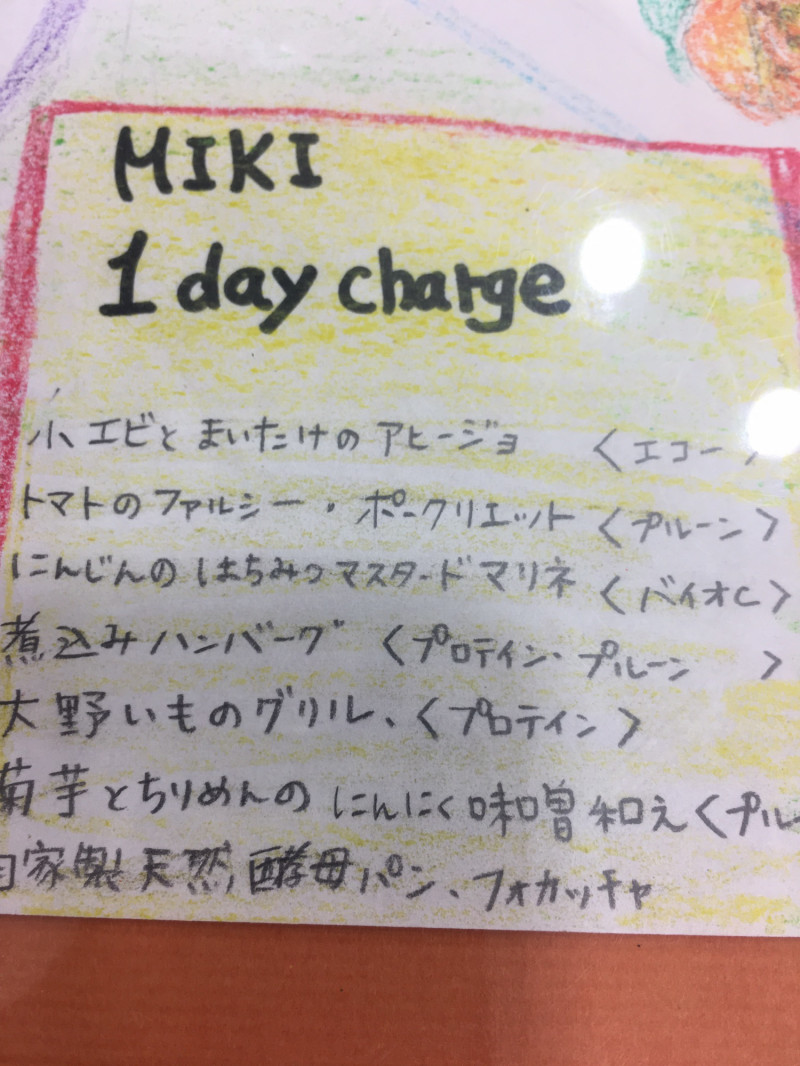 MIKI
1 day charge
小エビとまいたけのアヒージョ 〈エコー
トマトのファルシー・ポークリエット〈プルーン〉
にんじんのはちみつマスタードマリネ〈バイオC〉
煮込みハンバーグ〈プロテイン・プルーン 〉
大野いものグリル、〈プロテイン〉
菊芋とちりめんのにんにく味噌和え〈プルー
自家製天然酵母パン、フォカッチャ